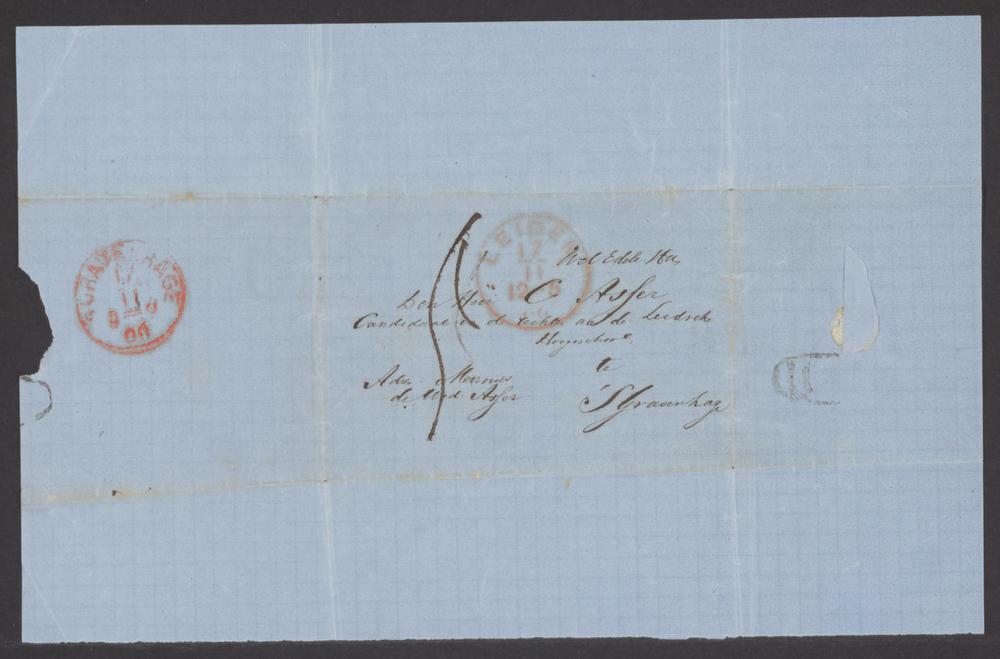 S GRAVENHAGE
17
11
LEIDEN
17
11
12
Wel Edele Heer
Den Heer C Asser
Candidaat in de rechten aan de Leidsche
Hoogeschool
te
Adres Mevrouw
de Wed Asser
'S Gravenhage